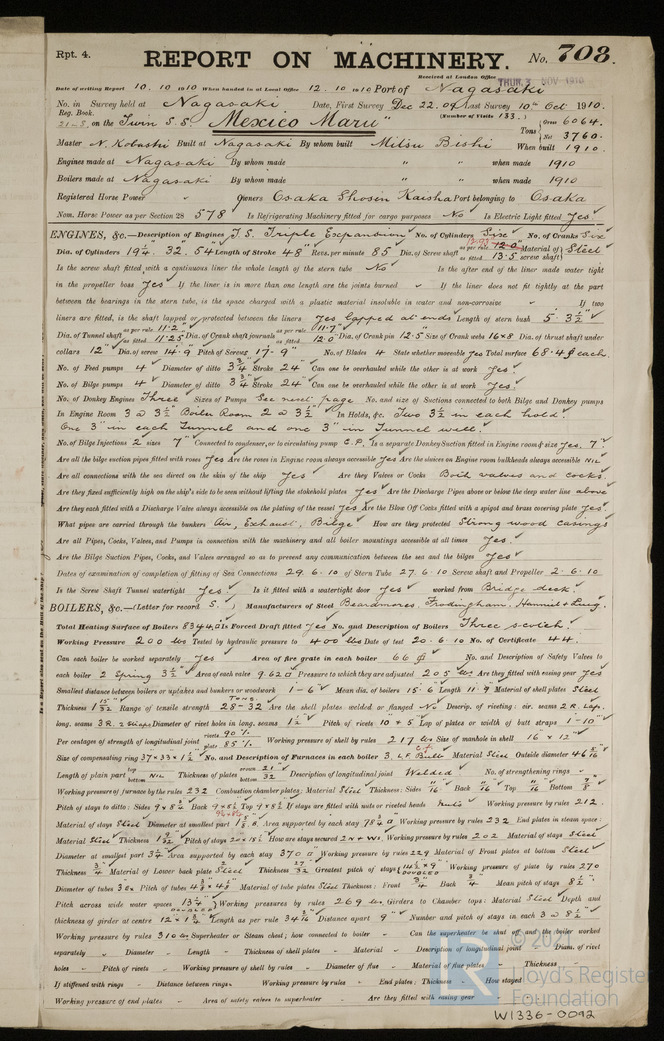 Rpt. 4.
REPORT ON MACHINERY.
No. 703.
Received at London Office THUR. 3 NOV 1910
Date of writing Report 10. 10. 1910 When handed in at Local Office 12. 10. 1910 Port of Nagasaki
No. in Survey held at Nagasaki Date, First Survey Dec 22. 09 Last Survey 10th Oct 1910.
Reg. Book. (Number of Visits 133.)
21-S. on the Twin S. S. "Mexico Maru" Tons Gross 6064. Net 3760.
Master N. Kobushi Built at Nagasaki By whom built Mitsu Bishi When built 1910.
Engines made at Nagasaki By whom made " " when made 1910
Boilers made at Nagasaki By whom made " " when made 1910
Registered Horse Power Owners Osaka Shosen Kaisha Port belonging to Osaka
Nom. Horse Power as per Section 28 578 Is Refrigerating Machinery fitted for cargo purposes No Is Electric Light fitted Yes.
ENGINES, &c.—Description of Engines T. S. Triple Expansion No. of Cylinders Six No. of Cranks Six
Dia. of Cylinders 19¼. 32. 54 Length of Stroke 48" Revs. per minute 85 Dia. of Screw shaft as per rule 12.0" as fitted 13.5 Material of screw shaft Steel
Is the screw shaft fitted with a continuous liner the whole length of the stern tube No Is the after end of the liner made water tight
in the propeller boss Yes If the liner is in more than one length are the joints burned If the liner does not fit tightly at the part
between the bearings in the stern tube, is the space charged with a plastic material insoluble in water and non-corrosive If two
liners are fitted, is the shaft lapped or protected between the liners Yes lapped at ends Length of stern bush 5. 3½"
Dia. of Tunnel shaft as per rule 11.2" as fitted 11.25 Dia. of Crank shaft journals as per rule 11.7" as fitted 12.0 Dia. of Crank pin 12.5" Size of Crank webs 16x8 Dia. of thrust shaft under
collars 12" Dia. of screw 14.9 Pitch of Screw 17-9" No. of Blades 4 State whether moveable Yes Total surface 68.4 ☐ each.
No. of Feed pumps 4 Diameter of ditto 3¾ Stroke 24" Can one be overhauled while the other is at work Yes.
No. of Bilge pumps 4 Diameter of ditto 3¾ Stroke 24" Can one be overhauled while the other is at work Yes.
No. of Donkey Engines Three Sizes of Pumps See next page No. and size of Suctions connected to both Bilge and Donkey pumps
In Engine Room 3 @ 3½ Boiler Room 2 @ 3½ In Holds, &c. Two 3½ in each hold.
One 3" in each Tunnel and one 3" in Tunnel well.
No. of Bilge Injections 2 sizes 7" Connected to condenser, or to circulating pump C.P. Is a separate Donkey Suction fitted in Engine room & size Yes. 7"
Are all the bilge suction pipes fitted with roses Yes Are the roses in Engine room always accessible Yes Are the sluices on Engine room bulkheads always accessible NIL
Are all connections with the sea direct on the skin of the ship Yes Are they Valves or Cocks Both valves and cocks.
Are they fixed sufficiently high on the ship's side to be seen without lifting the stokehold plates Yes Are the Discharge Pipes above or below the deep water line above
Are they each fitted with a Discharge Valve always accessible on the plating of the vessel Yes Are the Blow Off Cocks fitted with a spigot and brass covering plate Yes.
What pipes are carried through the bunkers Air, Exhaust, Bilge How are they protected Strong wood casings
Are all Pipes, Cocks, Valves, and Pumps in connection with the machinery and all boiler mountings accessible at all times Yes.
Are the Bilge Suction Pipes, Cocks, and Valves arranged so as to prevent any communication between the sea and the bilges Yes
Dates of examination of completion of fitting of Sea Connections 29. 6. 10 of Stern Tube 27. 6. 10 Screw shaft and Propeller 2. 6. 10
Is the Screw Shaft Tunnel watertight Yes. Is it fitted with a watertight door Yes worked from Bridge deck.
BOILERS, &c.—(Letter for record S.) Manufacturers of Steel Beardmores, Frodingham,
Total Heating Surface of Boilers 8344 ☐ Is Forced Draft fitted Yes No. and Description of Boilers Three s-ended.
Working Pressure 200 lbs Tested by hydraulic pressure to 400 lbs Date of test 20. 6. 10 No. of Certificate 44.
Can each boiler be worked separately Yes Area of fire grate in each boiler 66 ☐ No. and Description of Safety Valves to
each boiler 2 Spring 3½" Area of each valve 9.62 ☐ Pressure to which they are adjusted 205 lbs Are they fitted with easing gear Yes
Smallest distance between boilers or uptakes and bunkers or woodwork 1-6" Mean dia. of boilers 15.6 Length 11.9 Material of shell plates Steel
Thickness 1 15/32 Range of tensile strength 28-32 Tons Are the shell plates welded or flanged No Descrip. of riveting: cir. seams 2 R. Lap.
long. seams 3 R. 2 Straps Diameter of rivet holes in long. seams 1½ Pitch of rivets 10 x 5 Lap of plates or width of butt straps 1-10"
Per centages of strength of longitudinal joint rivets 90% plate 85% Working pressure of shell by rules 217 lbs Size of manhole in shell 16" x 12"
Size of compensating ring 37 x 33 x 1½" No. and Description of Furnaces in each boiler 3 Material Steel Outside diameter
Length of plain part top bottom NIL Thickness of plates crown bottom 21/32 Description of longitudinal joint Welded No. of strengthening rings
Working pressure of furnace by the rules 232 Combustion chamber plates: Material Steel Thickness: Sides Back Top Bottom
Pitch of stays to ditto: Sides Back Top If stays are fitted with nuts or riveted heads Nuts Working pressure by rules 212.
Material of stays Steel Diameter at smallest part Area supported by each stay Working pressure by rules 232 End plates in steam space:
Material Steel Thickness 1 9/32 Pitch of stays How are stays secured Working pressure by rules 202 Material of stays Steel
Diameter at smallest part 3¼ Area supported by each stay 370 Working pressure by rules 229 Material of Front plates at bottom Steel
Thickness ¾ Material of Lower back plate Steel Thickness 27/32 Greatest pitch of stays Working pressure of plate by rules 270
Diameter of tubes 3 Pitch of tubes Material of tube plates Steel Thickness: Front ¾ Back ¾ Mean pitch of stays 8½"
Pitch across wide water spaces 13¼ Working pressures by rules 269 lbs Girders to Chamber tops: Material Steel Depth and
thickness of girder at centre Length as per rule Distance apart 9" Number and pitch of stays in each 3 @ 8½"
Working pressure by rules 310 lbs Superheater or Steam chest; how connected to boiler Can the superheater be shut off and the boiler worked
separately Diameter Length Thickness of shell plates Material Description of longitudinal joint Diam. of rivet
holes Pitch of rivets Working pressure of shell by rules Diameter of flue Material of flue plates Thickness
If stiffened with rings Distance between rings Working pressure by rules End plates: Thickness How stayed
Working pressure of end plates Area of safety valves to superheater Are they fitted with easing gear
© 2021
Lloyd's Register
Foundation
W1336-0092